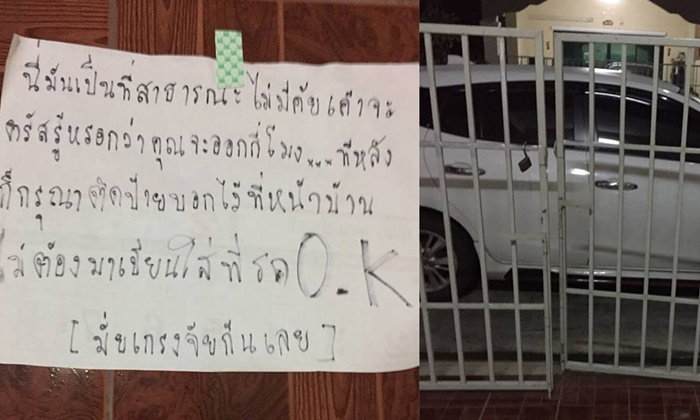 นี่มันเป็นที่สาธารณะไม่มีคัยเค้าจะ
ตรัสรู้หรอกว่าคุณจะออกกี่โมง...ทีหลัง
ก็กรุณาติดป้ายบอกไว้ที่หน้าบ้าน
ไม่ต้องมาเขียนใส่ที่รถ O.K
[ มั่ยเกรงจัยกันเลย ]